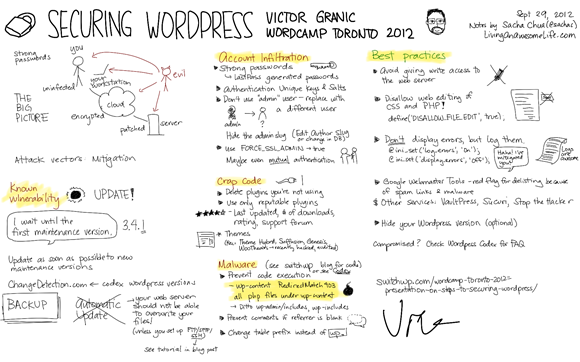 SECURING WORDPRESS
VICTOR GRANIC
WORDCAMP TORONTO 2012
Sept 29, 2012
Notes by Sacha Chua (@sachac)
LivingAnAwesomeLife.com
strong
passwords
you
your
workstation
evil
uninfected
cloud
THE
BIG
PICTURE
encrypted
patched
server
Attack vectors: Mitigation
Known
vulnerability
UPDATE!
I wait until the
first maintenance version.
3.4.1
Update as soon as possible to new
maintenance versions.
ChangeDetection.com ← codex wordpress versions
BACKUP
Automatic
Update
your web server
should not be able
to overwrite your
files!
(unless you set up FTP/SFTP/
SSH)
see tutorial in blog post
Account Infiltration
Strong passwords
LastPass generated passwords
Authentication Unique Keys & Salts
Don't use "admin" user - replace with
a different user
admin
?
Hide the admin slug (Edit Author Slug
or change in DB)
Use FORCE_SSL_ADMIN → true
Maybe even mutual authentication
Crap Code
Delete plugins you're not using
Use only reputable plugins
- Last updated, # of downloads,
rating, support forum
Themes
(Rec: Theme Hybrid, Suffusion, Genesis,
WooThemes → recently hacked, audited)
Malware
(see switchup blog for code)
or see Codex
Prevent code execution
- wp-content RedirectMatch 403
all php files under wp-content
- Ditto wp-admin/includes, wp-includes
Prevent comments if referrer is blank
Change table prefix instead of wp_
Best practices
Avoid giving write access to
the web server
Disallow web editing of
CSS and PHP!
define('DISALLOW_FILE_EDIT', true);
Don't display errors, but log them.
@ini_set('log_errors', 'On');
@ini_set('display_errors', 'Off');
Haha! I've
mitigated
you!
Logs are
awesome
Google Webmaster Tools - red flag for delisting because
of spam links & malware
$ Other services: VaultPress, Sucuri, Stop the Hacker
Hide your Wordpress version (optional)
Compromised? Check Wordpress Codex for FAQ
switchwp.com/wordcamp-toronto-2012-
presentation-on-steps-to-securing-wordpress/